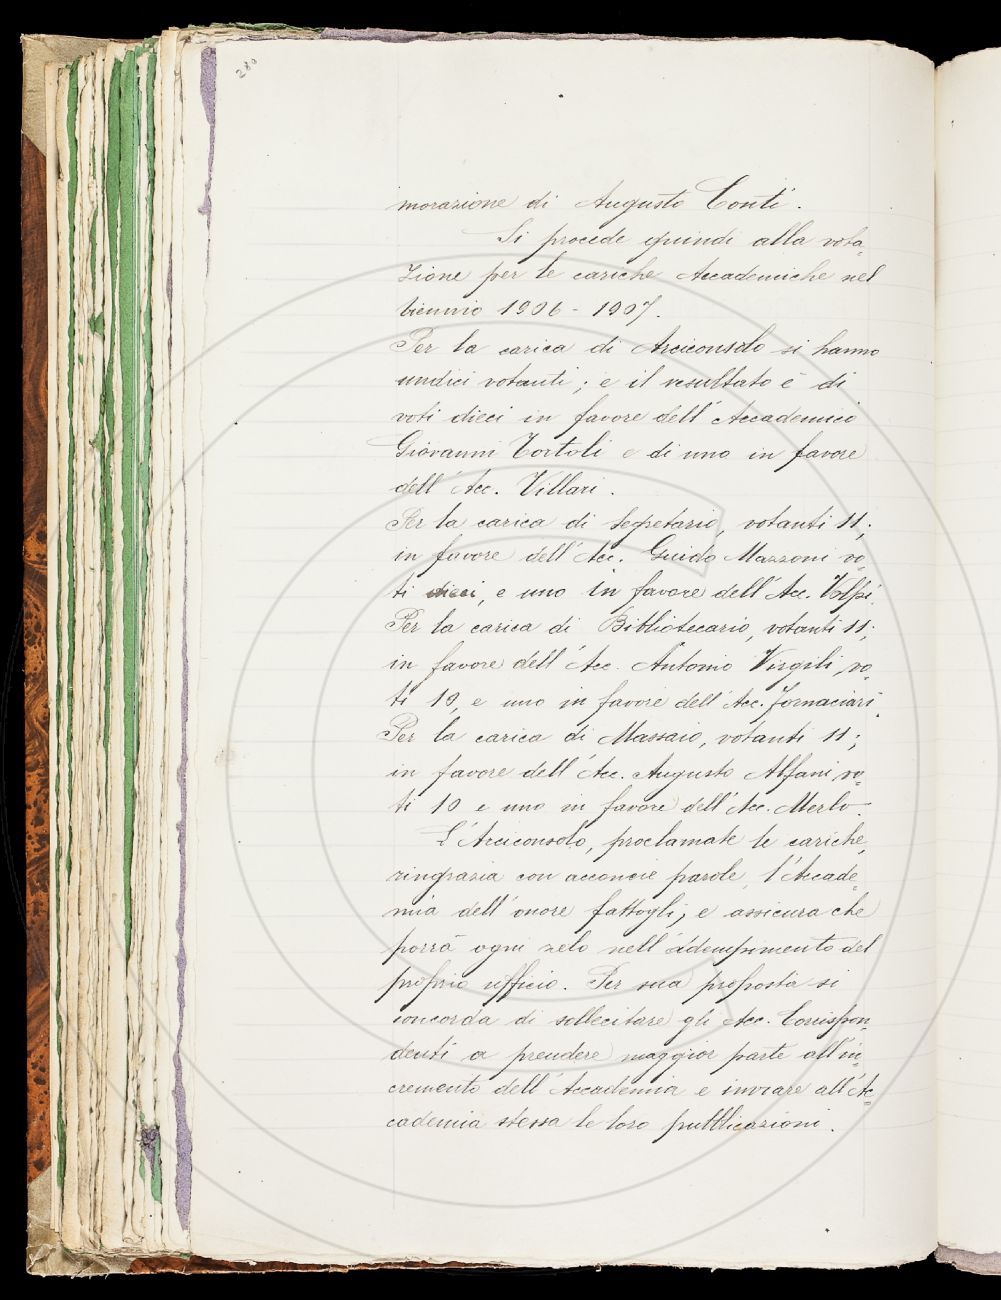 280
morazione di Augusto Conti.
Si procede quindi alla vota
zione per le cariche Accademiche nel
biennio 1906 - 1907.
Per la carica di Arciconsolo si hanno
undici votanti; e il resultato è di
voti dieci in favore dell'Accademico
Giovanni Tortoli e di uno in favore
dell'Acc. Villari.
Per la carica di Segretario, votanti 11;
in favore dell'Acc. Guido Mazzoni vo-
ti dieci, e uno in favore dell'Acc. Volpi.
Per la carica di Bibliotecario, votanti 11;
in favore dell'Acc. Antonio Virgili, vo-
ti 10, e uno in favore dell'Acc. Fornaciari.
Per la carica di Massaio, votanti 11;
in favore dell'Acc. Augusto Alfani vo-
ti 10 e uno in favore dell'Acc. Merlo.
L'Arciconsolo, proclamate le cariche,
ringrazia con acconcie parole, l'Accade-
mia dell'onore fattogli; e assicura che
porrà ogni zelo nell'adempimento del
proprio ufficio. Per sua proposta si
concorda di sollecitare gli Acc. Corrispon-
denti a prendere maggior parte all'in-
cremento dell'Accademia e inviare all'Ac-
cademia stessa le loro pubblicazioni.